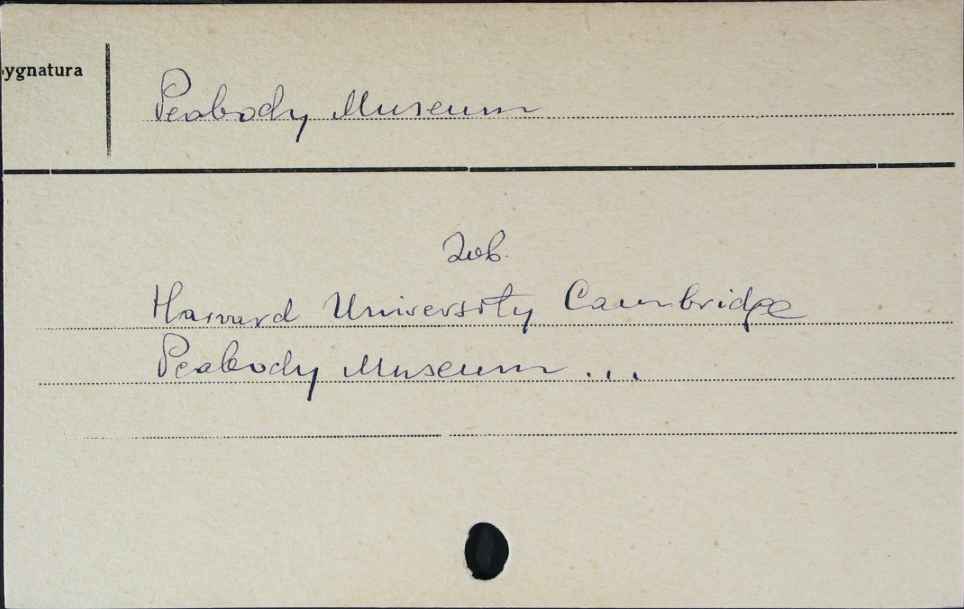 ygnatura
Peabody Museum
Zob.
Harvard University Cambridge
Peabody Museum ...